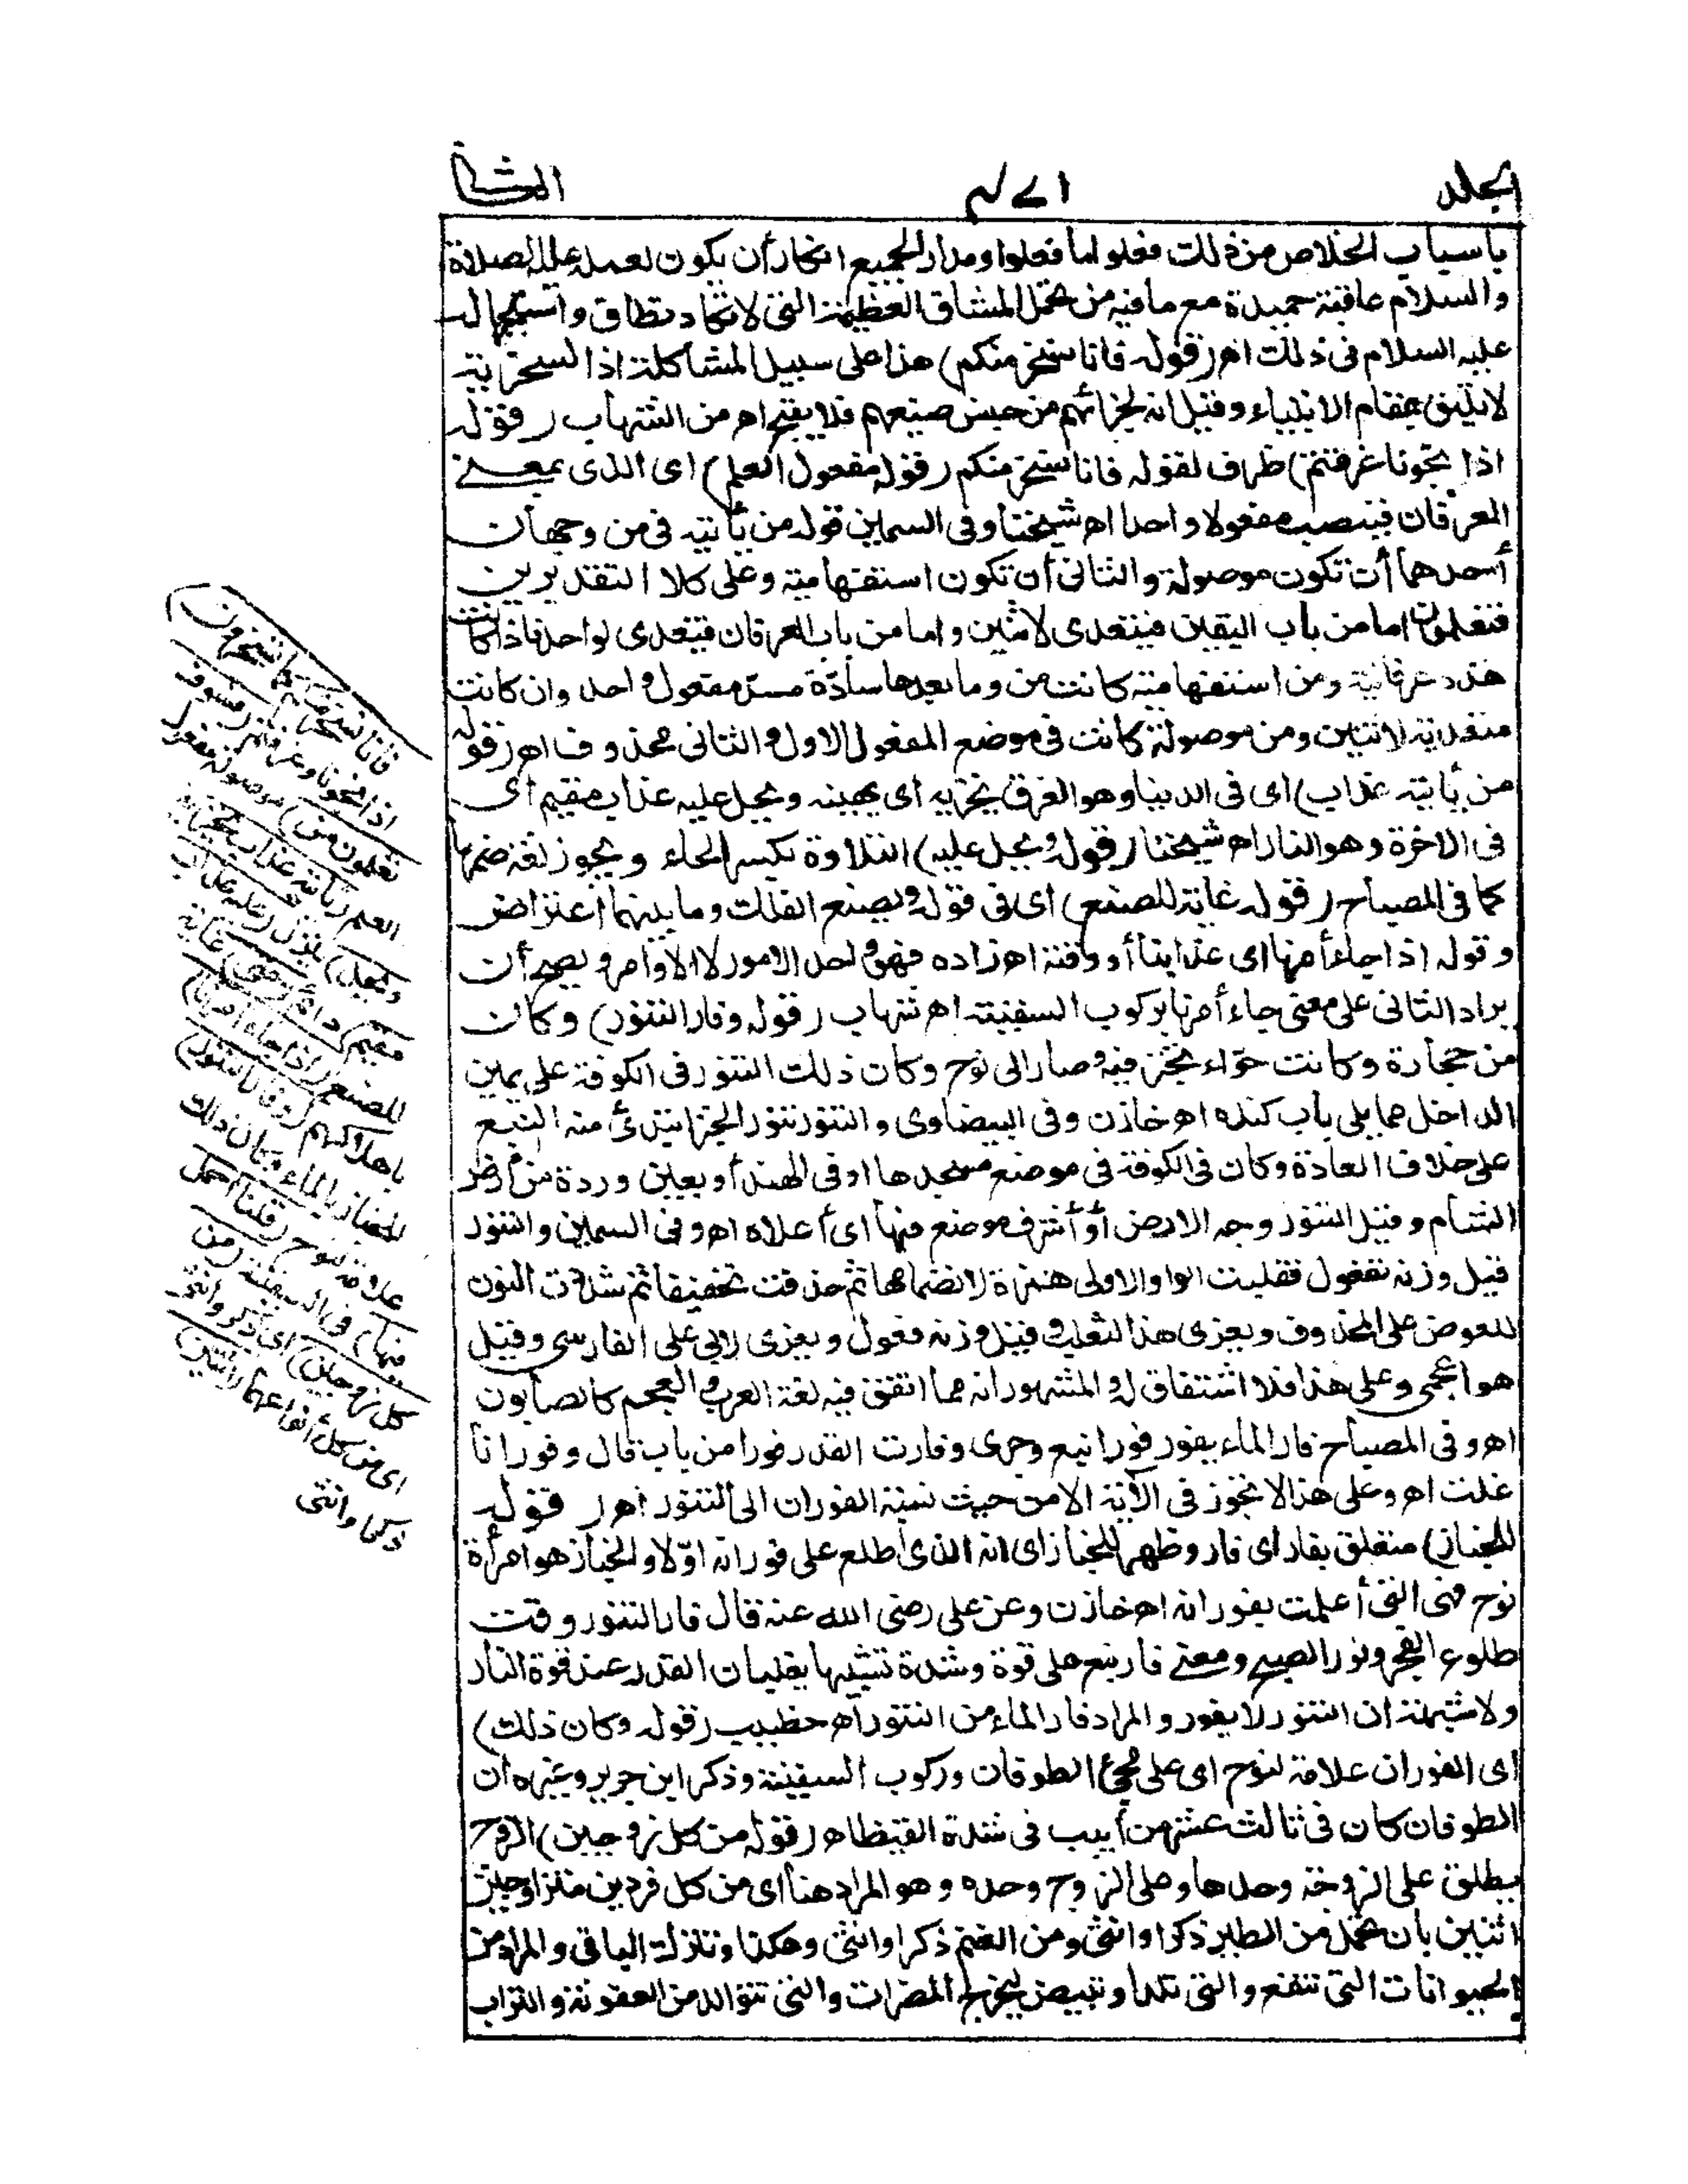 الجلد
٤٧١
الثانى
بأسباب الخلاص من ذلك فعلوا ما فعلوا ومدار الجميع انكار أن يكون لعمله عليه الصلاة
والسلام عاقبة حميدة مع ما فيه من تحمل المشاق العظيمة التى لا تكاد تطاق واستجهاله
عليه السلام فى ذلك اهر (قوله فانا نسخر منكم) هذا على سبيل المشاكلة اذ السخرية
لا تليق بمقام الانبياء وقيل انه لجزائهم من جنس صنيعهم فلا يقبح اهر من الشهاب (قوله
اذا نجونا وغرقتم) ظرف لقوله فانا نسخر منكم (قوله مفعول العلم) اى الذى بمعنى
العرفان فينصب مفعولا واحدا اه شيخنا وفى السمين قوله من يأتيه فى من وجهان
أحدهما أن تكون موصولة والثانى أن تكون استفهامية وعلى كلا التقديرين
فتعلمون اما من باب اليقين فيتعدى لاثنين واما من باب العرفان فيتعدى لواحد فاذا كانت
هذه عرفانية ومن استفهامية كانت من وما بعدها سادّة مسدّ مفعول واحد وان كانت
متعدية لاثنين ومن موصولة كانت فى موضع المفعول الاول والثانى محذوف اهر (قوله
من يأتيه عذاب) اى فى الدنيا وهو الغرق يخزيه اى يهينه ويحل عليه عذاب مقيم اى
فى الاخرة وهو النار اه شيخنا (قوله ويحل عليه) التلاوة بكسر الحاء ويجوز لغة ضمها
كما فى المصباح (قوله غاية للصنع) اى فى قوله ويصنع الفلك وما بينهما اعتراض
وقوله اذا جاء أمرنا اى عذابنا أو وقته اهر زاده فهو واحد الامور لا الاوامر ويصح أن
يراد الثانى على معنى جاء أمرنا بركوب السفينة اهر شهاب (قوله وفار التنور) وكان
من حجارة وكانت حوّاء تخبز فيه وصار الى نوح وكان ذلك التنور فى الكوفة على يمين
الداخل مما يلى باب كنده اهر خازن وفى البيضاوى والتنور تنور الخبز ابتدئ منه النبع
على خلاف العادة وكان فى الكوفة فى موضع مسجدها او فى الهند أو بعين وردة من أرض
الشام وقيل التنور وجه الارض أو أشرف موضع فيها اى أعلاه اهر وفى السمين والتنور
قيل وزنه تفعول فقلبت الواو الاولى همزة لانضمامها ثم حذفت تخفيفا ثم شددت النون
للعوض على المحذوف ويعزى هذا لثعلب وقيل وزنه فعول ويعزى لابى على الفارسى وقيل
هو اعجمى وعلى هذا فلا اشتقاق له والمشهور انه مما اتفق فيه لغة العرب والعجم كالصابون
اهر وفى المصباح فار الماء يفور فورا نبع وجرى وفارت القدر فورا من باب قال وفورانا
غلت اهر وعلى هذا لا تجوز فى الآية الا من حيث نسبة الفوران الى التنور اهر (قوله
للخباز) متعلق بفار اى فار وظهر للخباز اى انه الذى اطلع على فورانه اوّلا والخباز هو امرأة
نوح فهى التى أعلمت بفورانه اهر خازن وعن على رضى الله عنه قال فار التنور وقت
طلوع الفجر ونور الصبح ومعنى فار نبع على قوة وشدة تشبيها بغليان القدر عند قوة النار
ولا شبهة ان التنور لا يفور والمراد فار الماء من التنور اهر خطيب (قوله وكان ذلك)
اى الفوران علامة لنوح اى على مجئ الطوفان وركوب السفينة وذكر ابن جرير وغيره ان
الطوفان كان فى ثالث عشر من أبيب فى شدة القيظ اهر (قوله من كل زوجين) الزوج
يطلق على الزوجة وحدها وعلى الزوج وحده وهو المراد هنا اى من كل فردين متزاوجين
اثنين بان تحمل من الطير ذكرا وانثى ومن الغنم ذكرا وانثى وهكذا وتترك الباقى والمراد من
الحيوانات التى تنفع والتى تلد او تبيض ليخرج المضرات والتى تتوالد من العفونة والتراب
فانا نسخر منكم كما تسخرون)
اذا نجونا وغرقتم (فسوف
تعلمون من) موصولة مفعول
العلم (يأتيه عذاب يخزيه
ويحل) ينزل (عليه عذاب
مقيم) دائم (حتى) غاية
للصنع (اذا جاء أمرنا)
باهلاكهم (وفار التنور)
للخباز بالماء وكان ذلك
علامة لنوح (قلنا احمل
فيها) فى السفينة (من
كل زوجين) اى ذكر وانثى
اى من كل أنواعهما (اثنين)
ذكرا وانثى